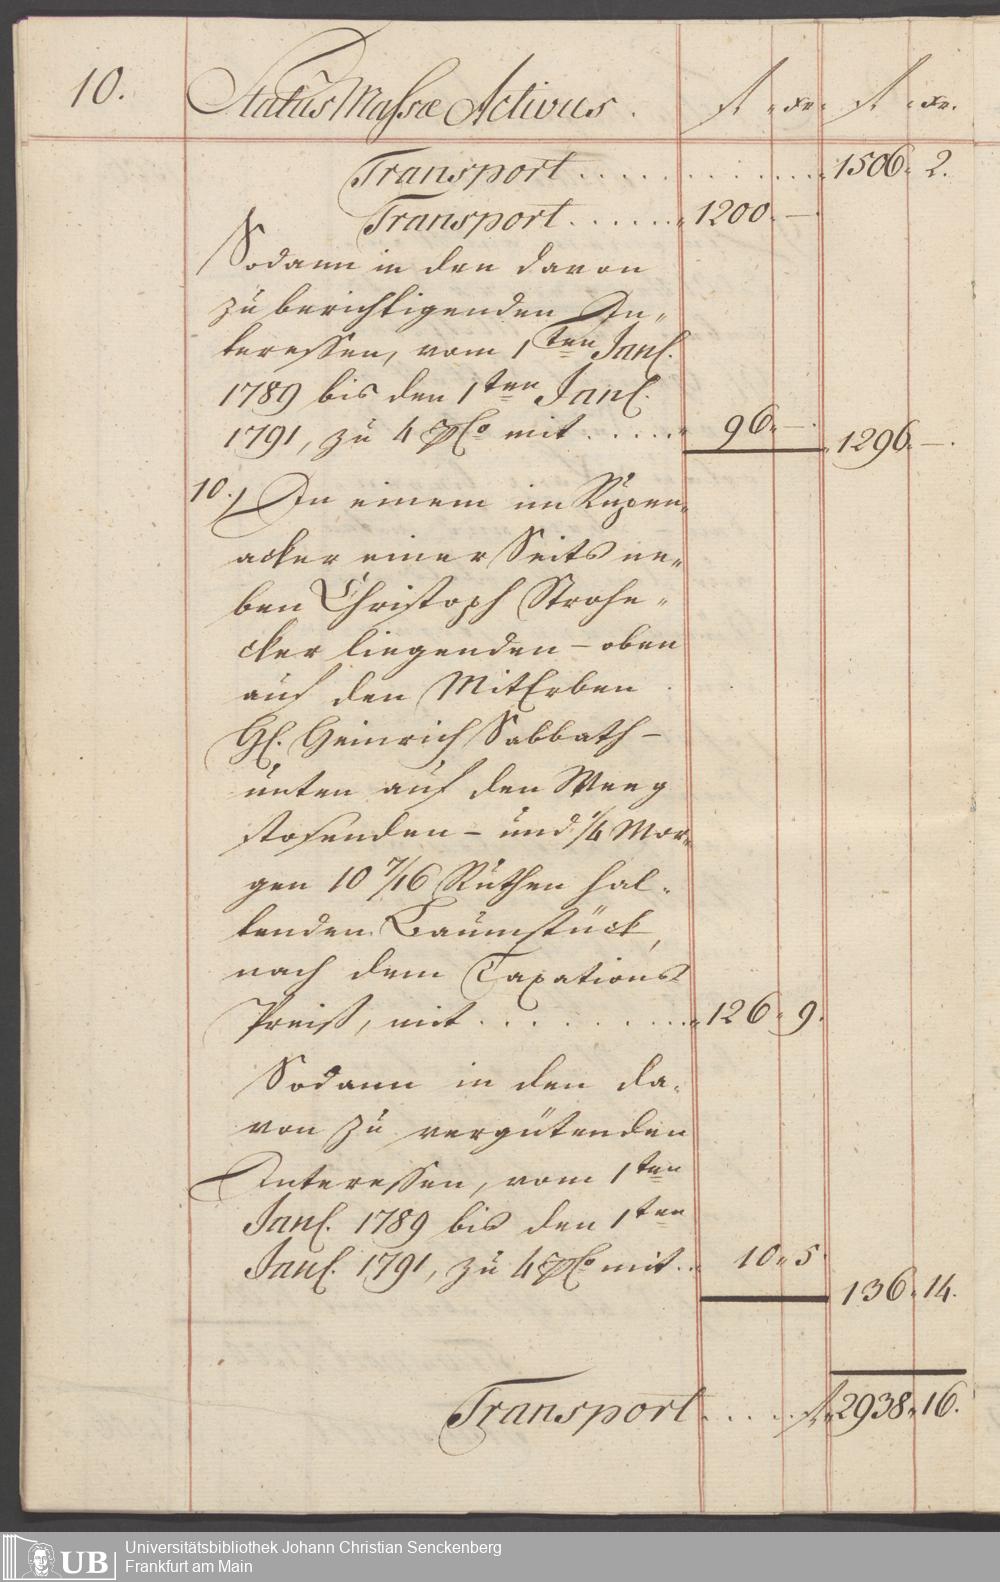 10. Status Massæ Activus. fl „ xr. fl „ xr.
Transport . . . . . . . . . . . . „ 1506 „ 2.
Transport . . . . . . „ 1200 „ —
Sodann in den davon
zu berichtigenden In„
teressen, vom 1ten Janl.
1789 bis den 1ten Janl.
1791, zu 4 pCo mit . . . . . „ 96 „ — . „ 1296 „ — .
10.) In einem im
acker einer Seits ne„
ben Christoph Strohe„
cker liegenden – oben
auf den MitErben
Hl. Heinrich Sabbath –
unten auf den Weeg
stosenden – und 1/4 Mor„
gen 10 7/16 Ruthen hal„
tenden Baumstück,
nach dem Taxations
Preiß, mit . . . . . . . . „ 126 „ 9.
Sodann in den da„
von zu vergütenden
Interessen, vom 1ten
Janl. 1789 bis den 1ten
Janl. 1791, zu 4 pCo mit . . 10 „ 5
136 „ 14.
Transport . . . . . fl „ 2938 „ 16.
UB
Universitätsbibliothek Johann Christian Senckenberg
Frankfurt am Main